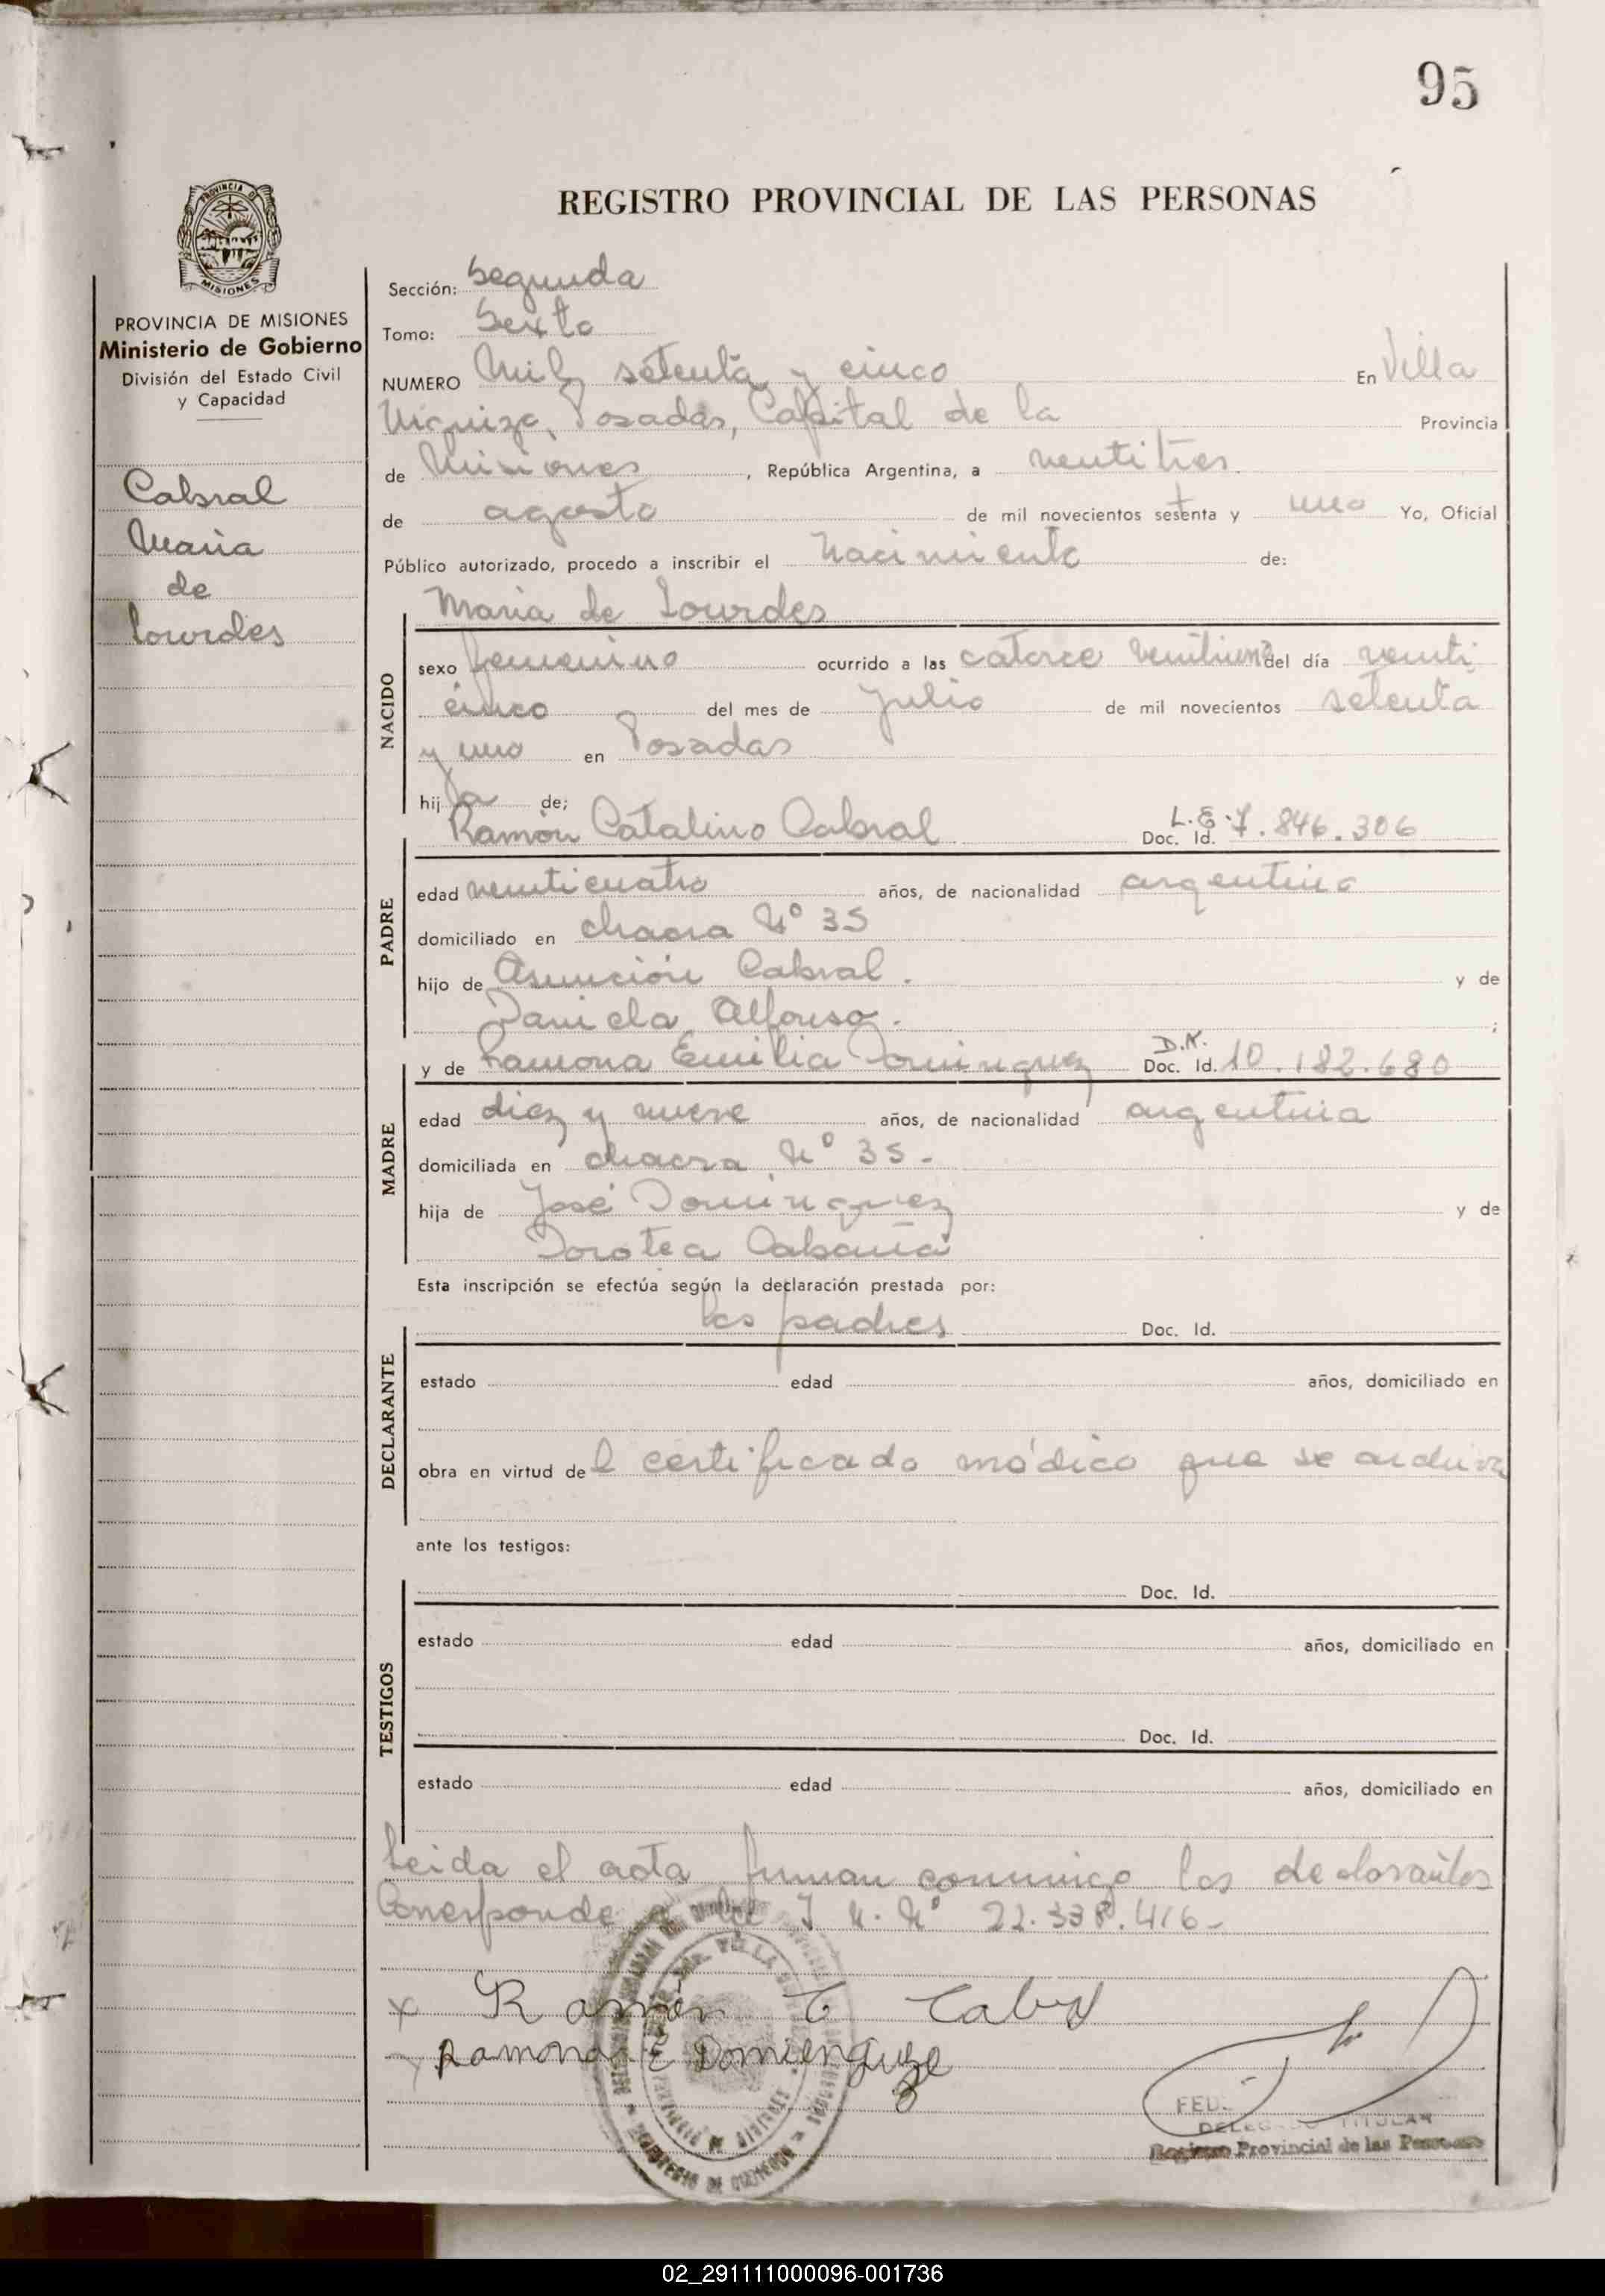 95
PROVINCIA DE
MISIONES
REGISTRO PROVINCIAL DE LAS PERSONAS
PROVINCIA DE MISIONES
Ministerio de Gobierno
División del Estado Civil
y Capacidad
Cabral
Maria
de
Lourdes
Sección: Segunda
Tomo: Sexto
NUMERO Mil setenta y cinco En Villa
Urquiza, Posadas, Capital de la Provincia
de Misiones, República Argentina, a ventitres
de agosto de mil novecientos setenta y uno Yo, Oficial
Público autorizado, procedo a inscribir el Nacimiento de:
Maria de Lourdes
NACIDO
sexo femenino ocurrido a las catorce del día veinti
cinco del mes de julio de mil novecientos setenta
y uno en Posadas
hija de;
Ramón Catalino Cabral L.E. Doc. Id. 7.846.306
PADRE
edad veinticuatro años, de nacionalidad argentina
domiciliado en chacra Nº 35
hijo de Asunción Cabral. y de
Daniela Alfonso. ;
y de Ramona Emilia Dominguez D.N. Doc. Id. 10.182.680
MADRE
edad diez y nueve años, de nacionalidad argentina
domiciliada en chacra Nº 35-
hija de José Dominguez y de
Dorotea Cabaña
Esta inscripción se efectúa según la declaración prestada por:
los padres Doc. Id.
DECLARANTE
estado edad años, domiciliado en
obra en virtud del certificado médico que se archiva
ante los testigos:
Doc. Id.
TESTIGOS
estado edad años, domiciliado en
Doc. Id.
estado edad años, domiciliado en
Leida el acta firman conmigo los declarantes
Corresponde Nº 22.338.416-
x Ramón C Cabral
Ramona E Domienguze
FED.
TITULAR
Registro Provincial de las Personas
02_291111000096-001736